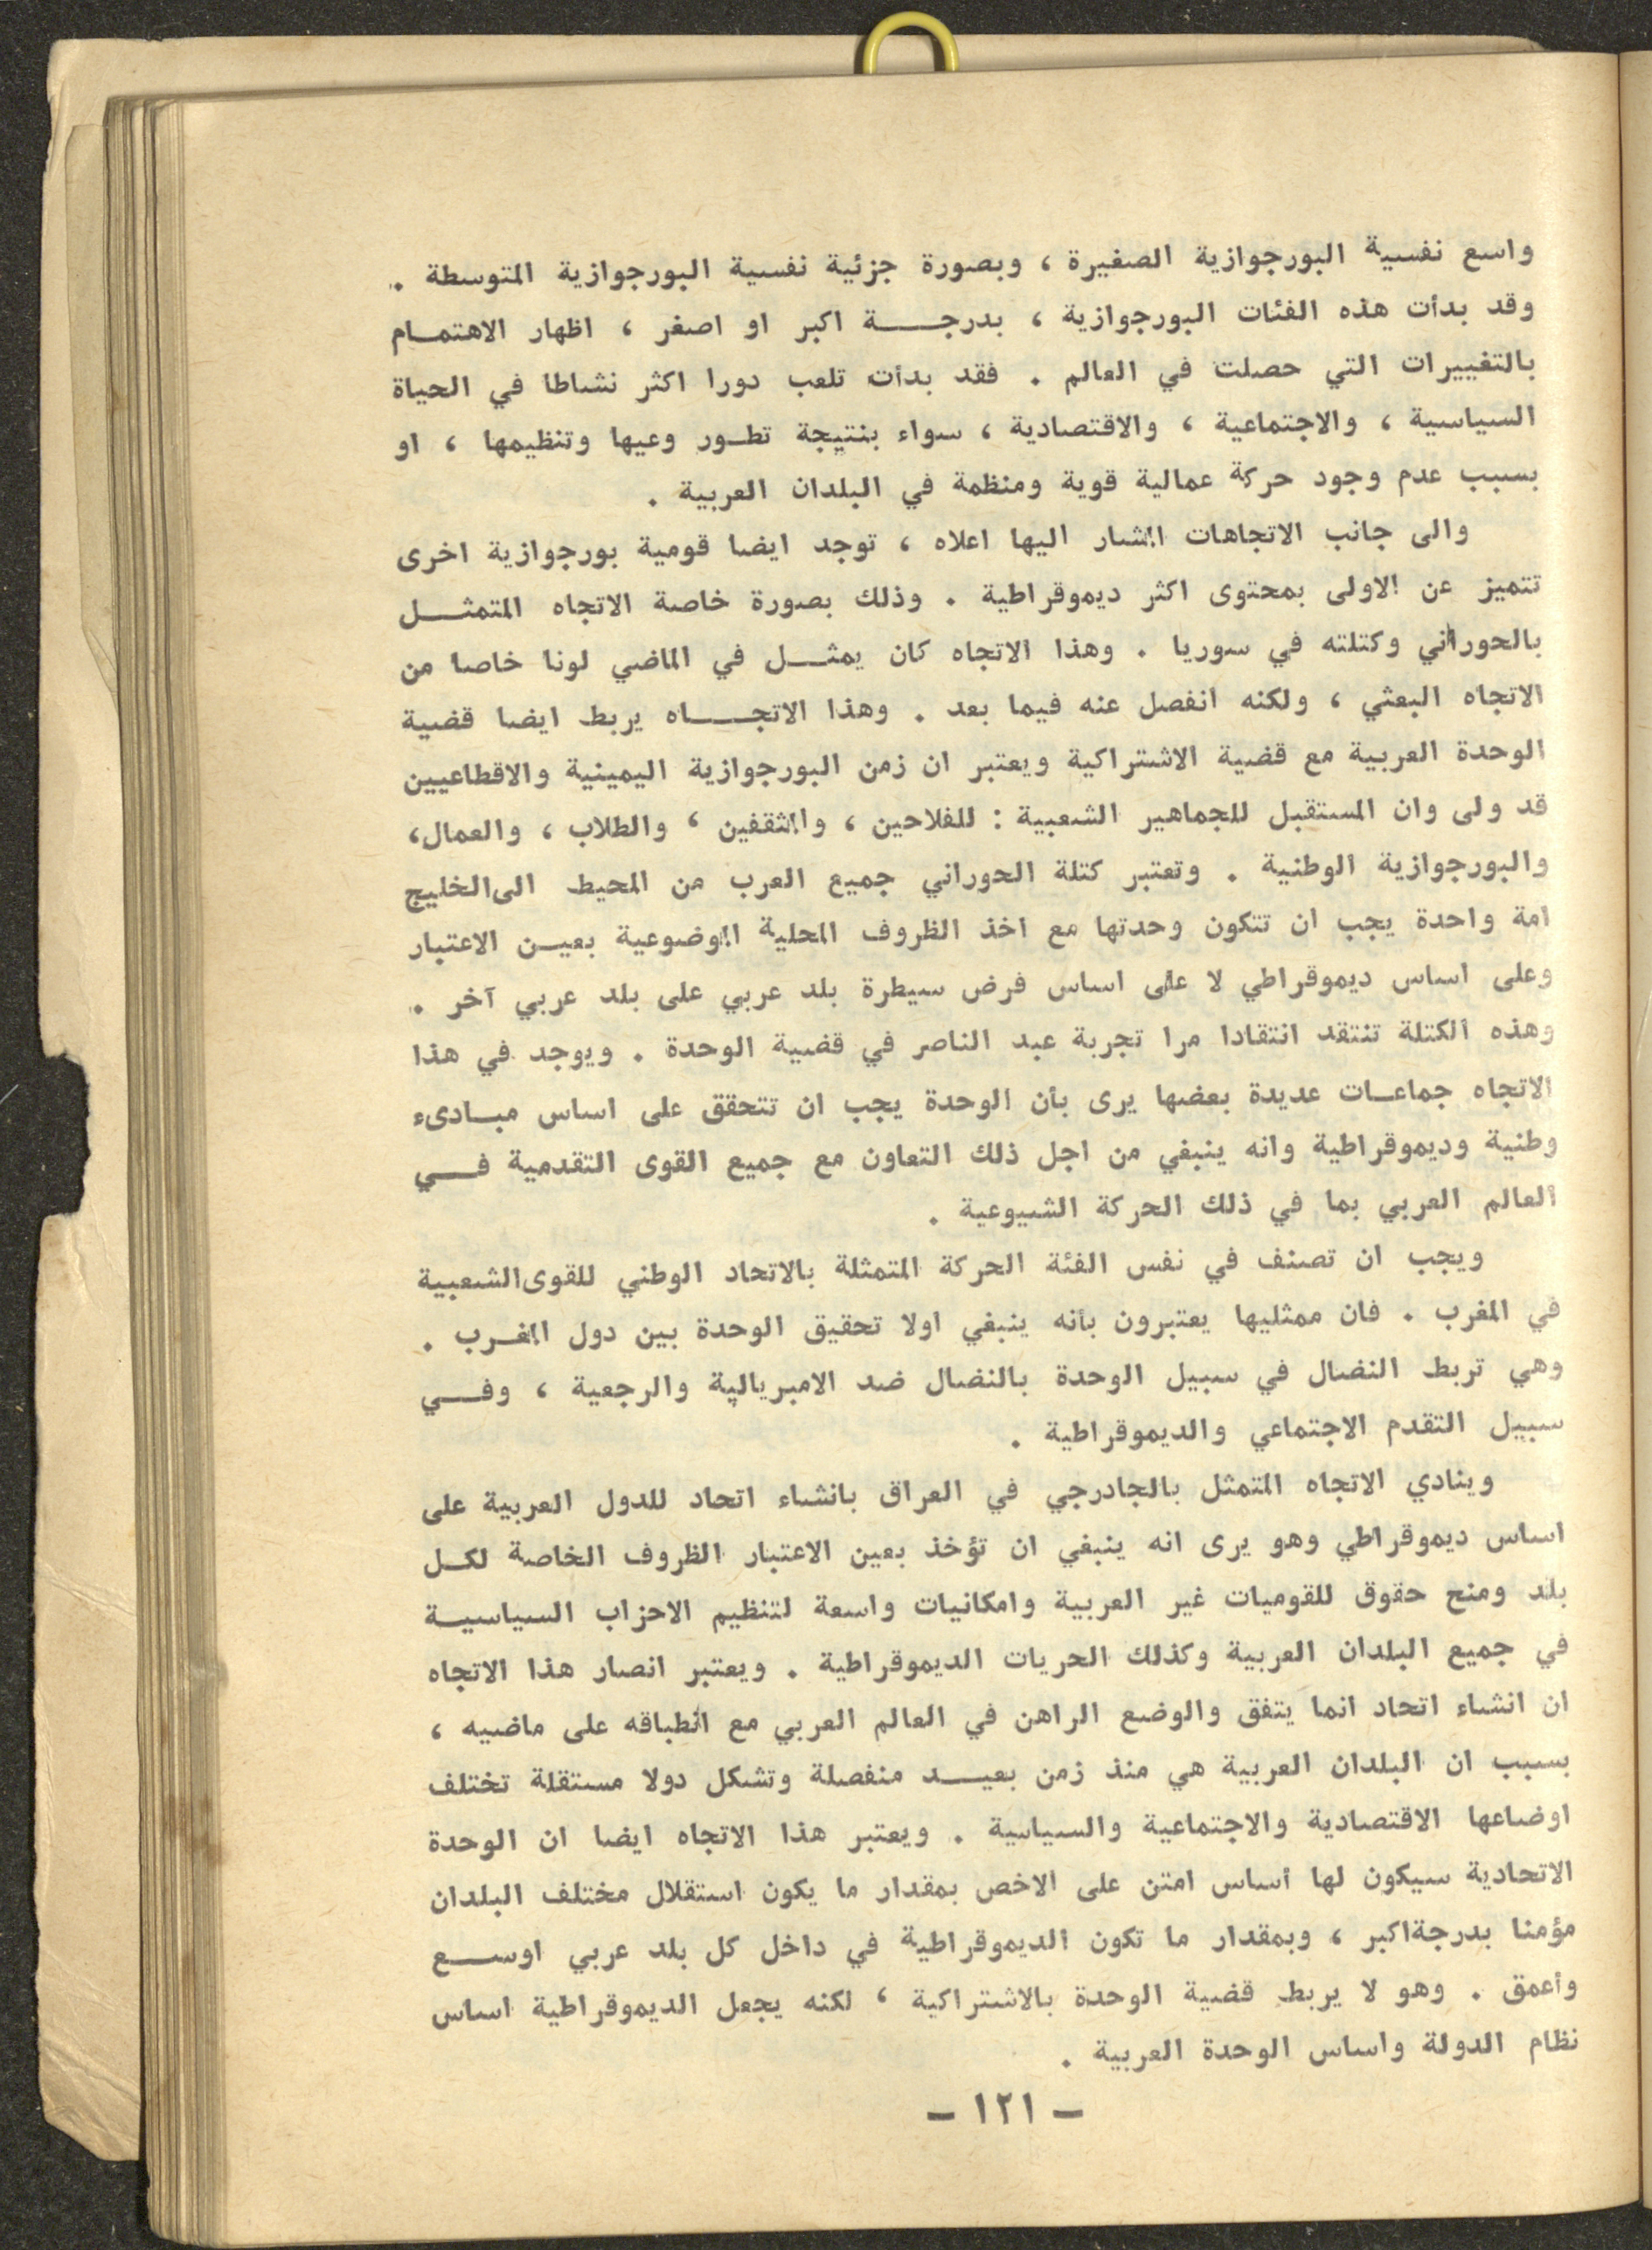 واسع نفسية البورجوازية الصغيرة ، وبصورة جزئية نفسية البورجوازية المتوسطة .
وقد بدأت هذه الفئات البورجوازية ، بدرجة اكبر او اصغر ، اظهار الاهتمام
بالتغييرات التي حصلت في العالم . فقد بدأت تلعب دورا اكثر نشاطا في الحياة
السياسية ، والاجتماعية ، والاقتصادية ، سواء بنتيجة تطور وعيها وتنظيمها ، او
بسبب عدم وجود حركة عمالية قوية ومنظمة في البلدان العربية .
والى جانب الاتجاهات المشار اليها اعلاه ، توجد ايضا قومية بورجوازية اخرى
تتميز عن الاولى بمحتوى اكثر ديموقراطية . وذلك بصورة خاصة الاتجاه المتمثل
بالحوراني وكتلته في سوريا . وهذا الاتجاه كان يمثل في الماضي لونا خاصا من
الاتجاه البعثي ، ولكنه انفصل عنه فيما بعد . وهذا الاتجاه يربط ايضا قضية
الوحدة العربية مع قضية الاشتراكية ويعتبر ان زمن البورجوازية اليمينية والاقطاعيين
قد ولى وان المستقبل للجماهير الشعبية : للفلاحين ، والمثقفين ، والطلاب ، والعمال،
والبورجوازية الوطنية . وتعتبر كتلة الحوراني جميع العرب من المحيط الى الخليج
امة واحدة يجب ان تتكون وحدتها مع اخذ الظروف المحلية الموضوعية بعين الاعتبار
وعلى اساس ديموقراطي لا على اساس فرض سيطرة بلد عربي على بلد عربي آخر .
وهذه الكتلة تنتقد انتقادا مرا تجربة عبد الناصر في قضية الوحدة . ويوجد في هذا
الاتجاه جماعات عديدة بعضها يرى بأن الوحدة يجب ان تتحقق على اساس مبادىء
وطنية وديموقراطية وانه ينبغي من اجل ذلك التعاون مع جميع القوى التقدمية في
العالم العربي بما في ذلك الحركة الشيوعية .
ويجب ان تصنف في نفس الفئة الحركة المتمثلة بالاتحاد الوطني للقوى الشعبية
في المغرب . فان ممثليها يعتبرون بأنه ينبغي اولا تحقيق الوحدة بين دول المغرب .
وهي تربط النضال في سبيل الوحدة بالنضال ضد الامبريالية والرجعية ، وفي
سبيل التقدم الاجتماعي والديموقراطية .
وينادي الاتجاه المتمثل بالجادرجي في العراق بانشاء اتحاد للدول العربية على
اساس ديموقراطي وهو يرى انه ينبغي ان تؤخذ بعين الاعتبار الظروف الخاصة لكل
بلد ومنح حقوق للقوميات غير العربية وامكانيات واسعة لتنظيم الاحزاب السياسية
في جميع البلدان العربية وكذلك الحريات الديموقراطية . ويعتبر انصار هذا الاتجاه
ان انشاء اتحاد انما يتفق والوضع الراهن في العالم العربي مع انطباقه على ماضيه ،
بسبب ان البلدان العربية هي منذ زمن بعيد منفصلة وتشكل دولا مستقلة تختلف
اوضاعها الاقتصادية والاجتماعية والسياسية . ويعتبر هذا الاتجاه ايضا ان الوحدة
الاتحادية سيكون لها أساس امتن على الاخص بمقدار ما يكون استقلال مختلف البلدان
مؤمنا بدرجة اكبر ، وبمقدار ما تكون الديموقراطية في داخل كل بلد عربي اوسع
وأعمق . وهو لا يربط قضية الوحدة بالاشتراكية ، لكنه يجعل الديموقراطية اساس
نظام الدولة واساس الوحدة العربية .
– ١٢١ –